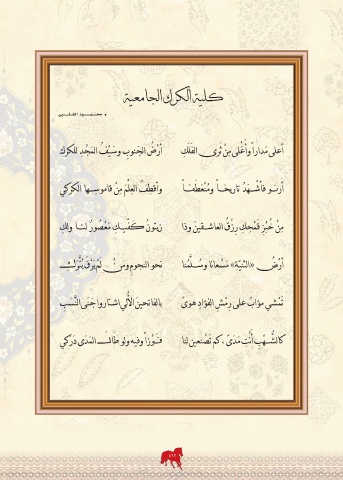 كلية الكرك الجامعية
• محمود الشلبي
أعلى مداراً وأغْلى مِنْ ثرى الفَلَك أرْضُ الجنوب وسَيْفُ المجْد للكرك
أرنو فأشْهَدُ تاريخاً ومُنْعَطفاً وأقطفُ العِلْمَ مِنْ قاموسِها الكركي
مِنْ خُبْزِ قَمْحِكِ رِزْقُ العاشقين وذا زيتونُ كفّيكِ مَعْصُورٌ لنا ولكِ
أرْضُ «الثنيّة» مَسْعانا وسُلَّمنا نحو النجوم ومنْ لمْ يَرْقَ يَتَّرك
تَمْشي مؤابُ على رمْشِ الفؤادِ هوىً بالفاتحينَ الأُلي اشتاروا جَنَى
كالشُّهْبِ أنْتِ مَدَىً، كم تَصْنعين لنا فوزاً وفيه ولو طالَ المَدى دَرَكي